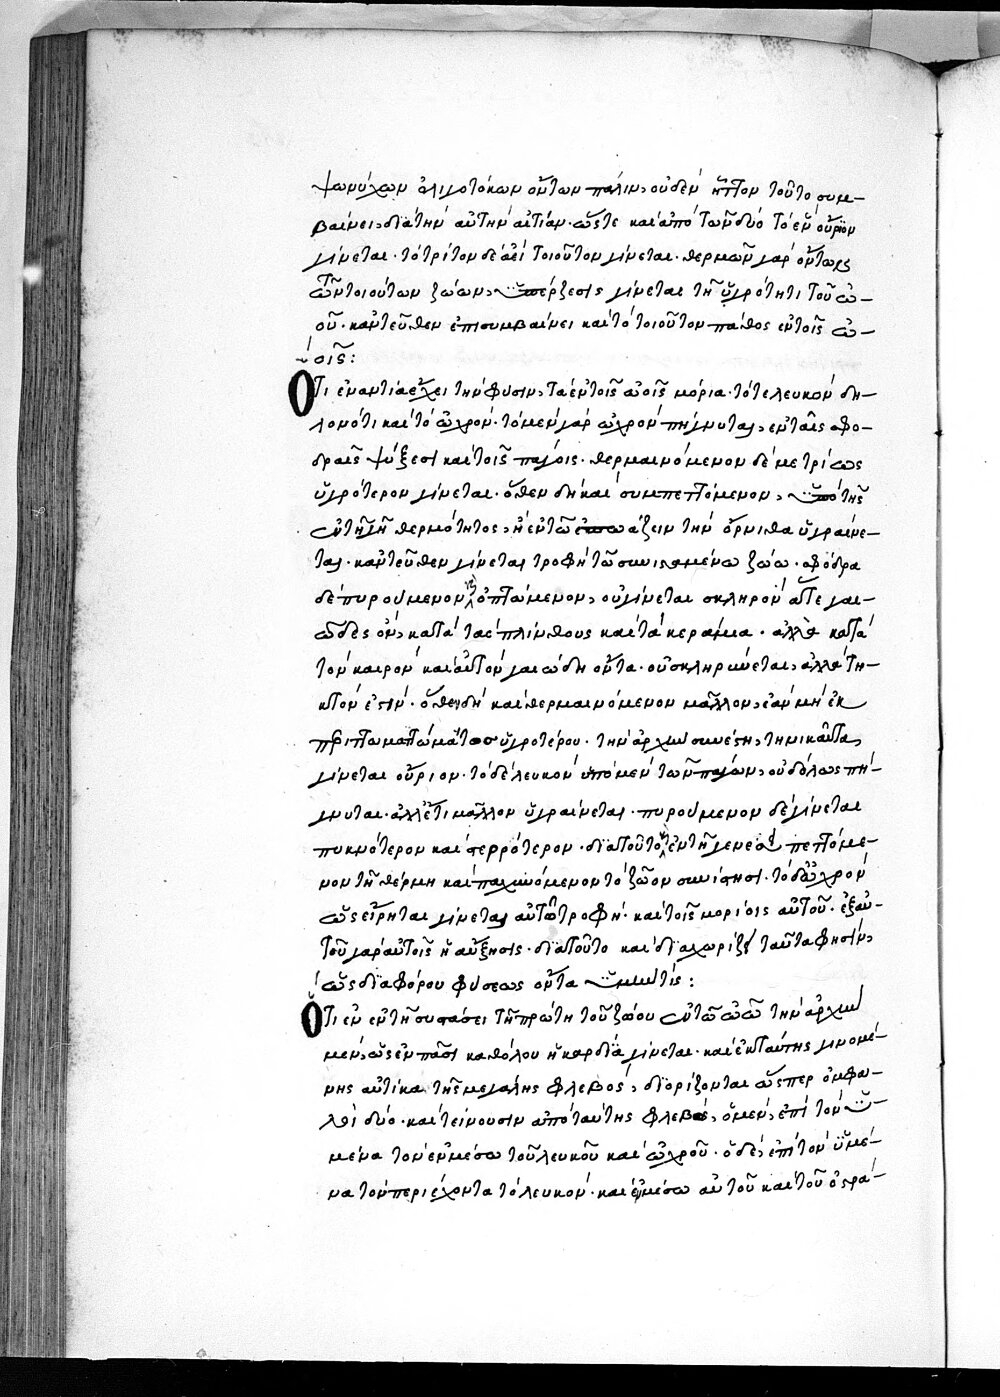 ψωνύχων ὀλιγοτόκων ὄντων πάλιν, οὐδὲν ἧττον τοῦτο συμ-
βαίνει, διὰ τὴν αὐτὴν αἰτίαν. ὥστε καὶ ἀπὸ τῶν δύο τὸ ἓν οὔριον
γίνεται. τὸ τρίτον δὲ ἀεὶ τοιοῦτον γίνεται. θερμῶν γὰρ ὄντων
τῶν τοιούτων ζώων, ὑπέρζεσις γίνεται τῇ ὑγρότητι τοῦ ὠ-
οῦ. κἀντεῦθεν ἐπισυμβαίνει καὶ τὸ τοιοῦτον πάθος ἐν τοῖς ὠ-
οῖς:
Ὅτι ἐναντία ἔχει τὴν φύσιν, τὰ ἐν τοῖς ὠοῖς μόρια. τό τε λευκὸν δη-
λονότι καὶ τὸ ὠχρόν. τὸ μὲν γὰρ ὠχρὸν πήγνυται, ἐν ταῖς σφο-
δραῖς ψύξεσι καὶ τοῖς πάγοις. θερμαινόμενον δὲ μετρίως
ὑγρότερον γίνεται. ὅθεν δὴ καὶ συμπεπτόμενον, ὑπὸ τῆς
ἐν τῇ γῇ θερμότητος, ἢ ἐν τῷ ἐπωάζειν τὴν ὄρνιθα ὑγραίνε-
ται. κἀντεῦθεν γίνεται τροφὴ τῷ συνισταμένῳ ζώῳ. σφόδρα
δὲ πυρούμενον καὶ ὀπτώμενον, οὐ γίνεται σκληρὸν ἅτε γαι-
ῶδες ὂν, κατὰ τὰς πλίνθους καὶ τὰ κεράμια. ἀλλὰ κατὰ
τὸν καιρὸν καὶ αὐτὸν γαιώδη ὄντα. οὐ σκληρύνεται, ἀλλὰ τη-
κτόν ἐστιν. ὅθεν δὴ καὶ θερμαινόμενον μᾶλλον, ἐὰν μὴ ἐκ
περιττώματος ὑγροτέρου. τὴν ἀρχὴν συνέστη, τηνικαῦτα,
γίνεται οὔριον. τὸ δὲ λευκὸν ὑπὸ μὲν τῶν πάγων, οὐδόλως πή-
γνυται. ἀλλ' ἔτι μᾶλλον ὑγραίνεται. πυρούμενον δὲ γίνεται
πυκνότερον καὶ στερρότερον. διὰ τοῦτο καὶ ἐν τῇ γενέσει πεπτόμε-
νον τῇ θέρμῃ καὶ παχυνόμενον τὸ ζῶον συνίστησι. τὸ δὲ ὠχρὸν
ὡς εἴρηται γίνεται αὐτῷ τροφὴ. καὶ τοῖς μορίοις αὐτοῦ. ἐξ αὐ-
τοῦ γὰρ αὐτοῖς ἡ αὔξησις. διὰ τοῦτο καὶ διαχωρίζει ταῦτα φησὶν,
ὡς διαφόρου φύσεως ὄντα ὑμὴν τίς:
Ὅτι ἐν ἐν τῇ συστάσει τῇ πρώτῃ τοῦ ζώου ἐν τῷ ὠῷ τὴν ἀρχὴν
μὲν, ὡς ἐν πᾶσι καθόλου ἡ καρδία γίνεται. καὶ ἐκ ταύτης γινομέ-
νης αὐτίκα τῆς μεγάλης φλεβὸς, διορίζονται ὥσπερ ὀμφα-
λοὶ δύο. καὶ τείνουσιν ἀπὸ ταύτης φλεβὸς, ὁ μὲν, ἐπὶ τὸν ὑ-
μένα τὸν ἐν μέσῳ τοῦ λευκοῦ καὶ ὠχροῦ. ὁ δὲ, ἐπὶ τὸν ὑμέ-
να τὸν περιέχοντα τὸ λευκόν. καὶ ἐν μέσῳ αὐτοῦ καὶ τοῦ ὀστρά-